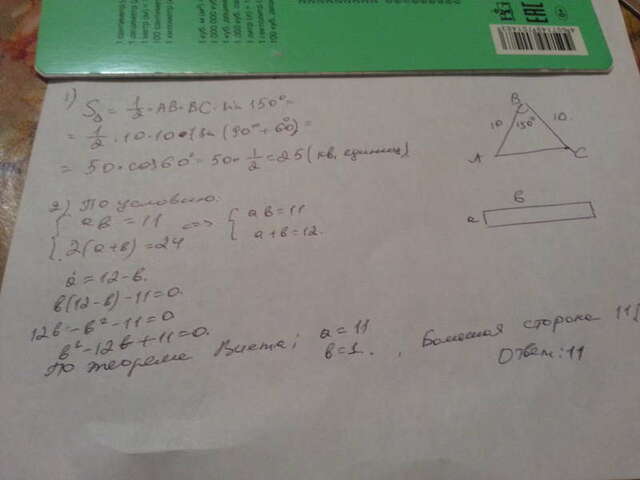 EAC
0+
1)
S△ = 1/2 · AB · BC · sin 150° =
= 1/2 · 10 · 10 · (sin (90° + 60°) =
= 50 · cos 60° = 50 · 1/2 = 25 (кв. единиц)
B
10
150°
10
A
C
2) По условию:
{ ab = 11
{ 2(a+b) = 24
<=>
{ ab = 11
{ a+b = 12.
b
a
a = 12 - b.
b(12-b) - 11 = 0.
12b - b² - 11 = 0
b² - 12b + 11 = 0.
По теореме Виета: a = 11
b = 1.
, Большая сторона 11
Ответ: 11